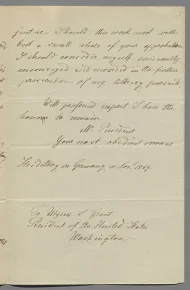 justice. Should this work not rob
but a small share of your approbation
I should consider myself eminently
encouraged and rewarded in the further
prosecution of my literary pursuits
With profound respect I have the
honour to remain
Mr President
Your most obedient servant
Heidelberg in Germany, 10 Nov. 1869.
To Ulysses S Grant
President of the United States
Washington